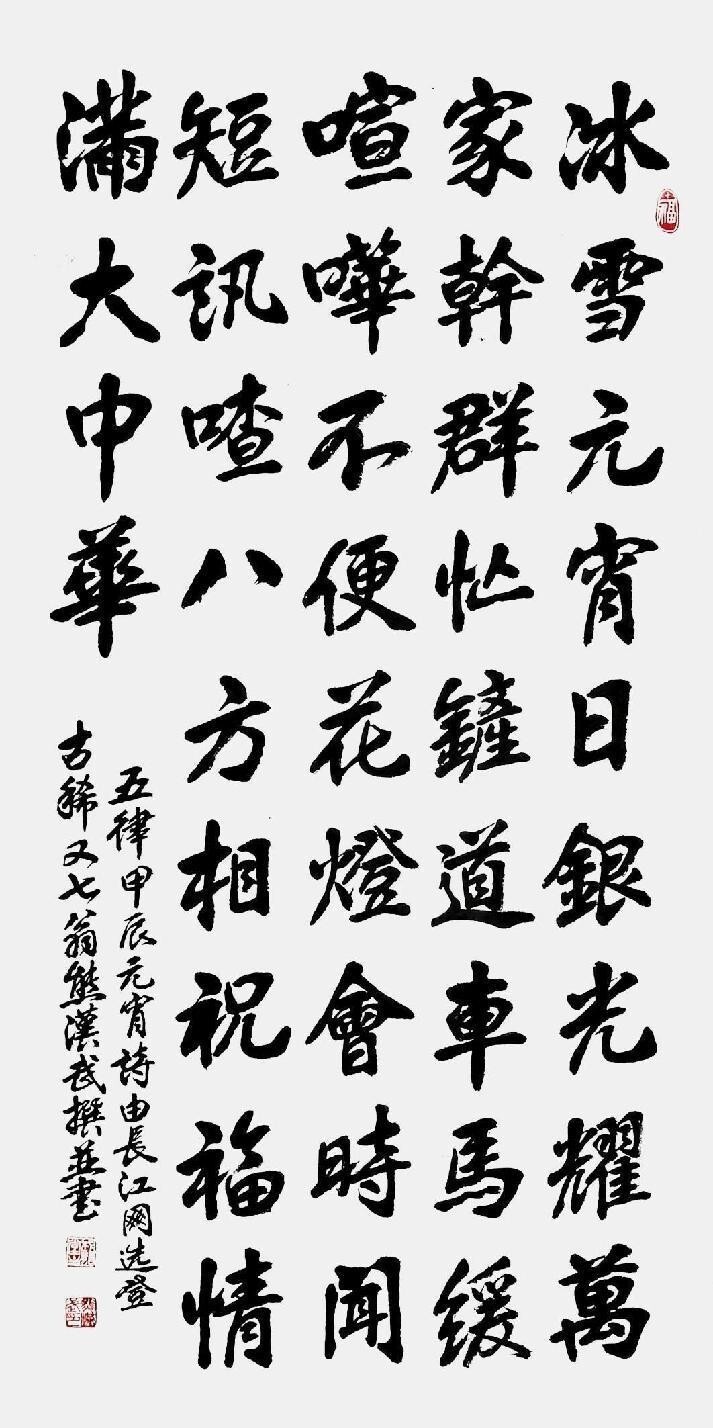 冰雪元宵日銀光耀萬
家幹群忙鏟道車馬緩
喧嘩不便花燈會時聞
短訊喳八方相祝福情
滿大中華
五律甲辰元宵詩由長江網選登
古稀又七翁熊漢武撰並書